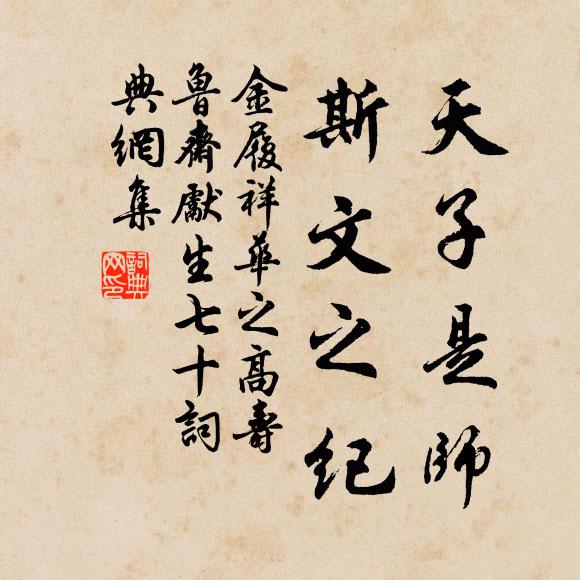 天子是師
斯文之纪
金履祥華之高壽
魯齋獻生七十詞
典網集
詞典网印